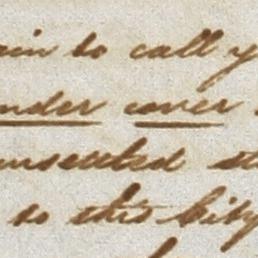 to call
under cover
unsettled
to this City